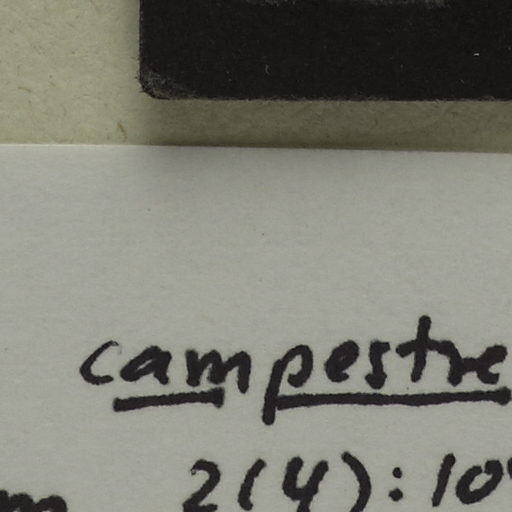 campestre
2(4):10
m